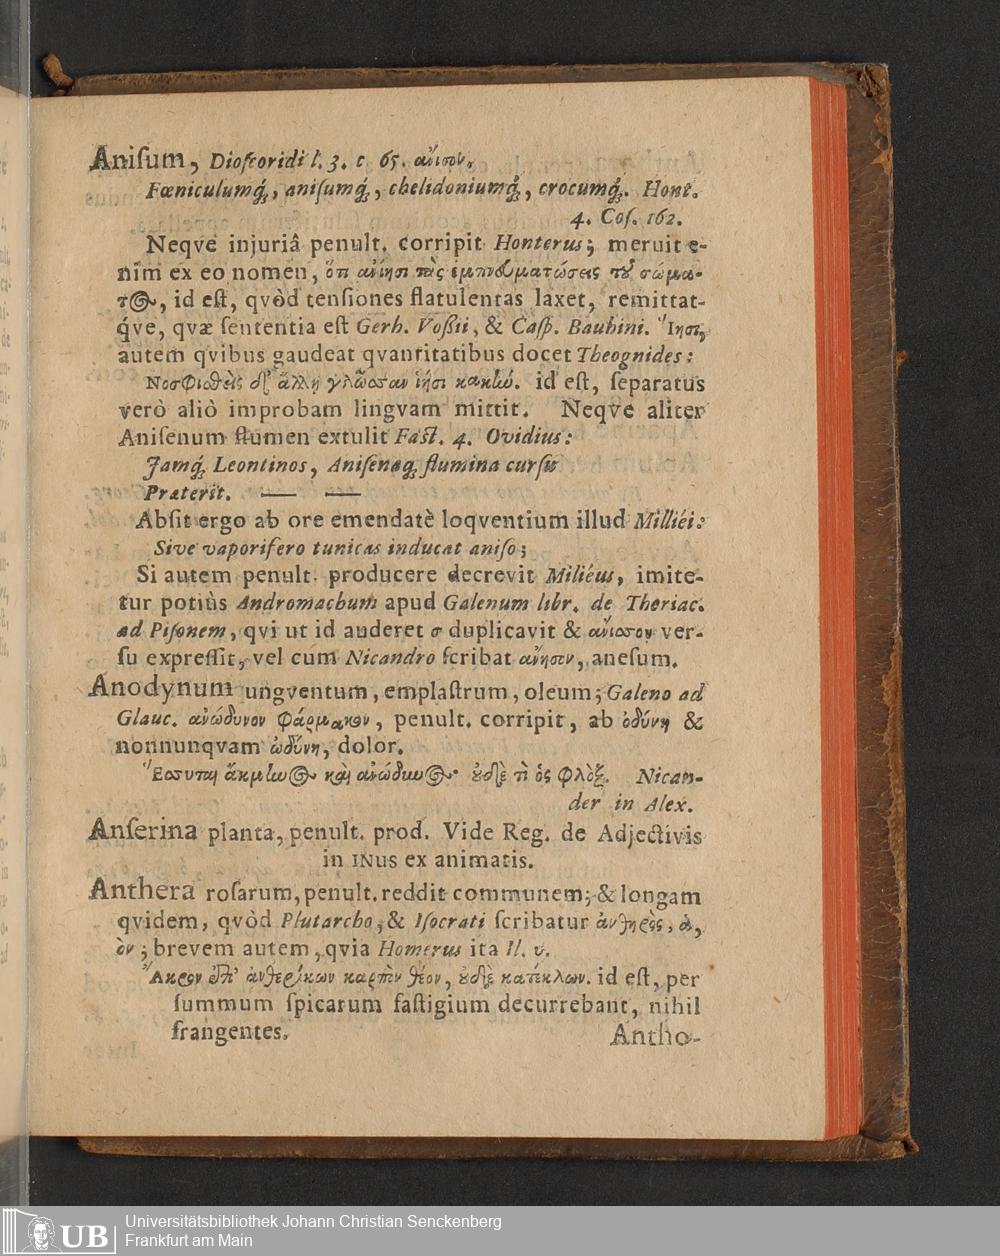 Aniſum, Dioſcoridi l. 3. c 65. ἄνισον.
Fœniculumq́;, aniſumq́;, chelidoniumq́;, crocumq́;. Hont.
4. Coſ. 162.
Neqve injuriâ penult. corripit Honterus; meruit e-
nim ex eo nomen, ὅτι ἀνίησι τὰς ἐμπνευματώσεις τοῦ σώμα-
τος, id eſt, qvòd tenſiones flatulentas laxet, remittat-
q́ve, qvæ ſententia eſt Gerh. Voßii, & Caſp. Bauhini. Ἵησι,
autem qvibus gaudeat qvantitatibus docet Theognides:
Νοσφισθεὶς δ' ἄλλῃ γλῶσσαν ἵησι κακήν. id eſt, ſeparatus
verò aliò improbam lingvam mittit. Neqve aliter
Aniſenum flumen extulit Faſt. 4. Ovidius:
Jamq́; Leontinos, Aniſenaq́; flumina curſu
Præterit. — —
Abſit ergo ab ore emendatè loqventium illud Milliéi:
Sive vaporifero tunicas inducat aniſo;
Si autem penult. producere decrevit Miliéus, imite-
tur potiùs Andromachum apud Galenum libr. de Theriac.
ad Piſonem, qvi ut id auderet σ duplicavit & ἄνισσον ver-
ſu expreſſit, vel cum Nicandro ſcribat ἄνησον, aneſum.
Anodynum ungventum, emplaſtrum, oleum; Galeno ad
Glauc. ἀνώδυνον φάρμακον, penult. corripit, ab ὀδύνη &
nonnunqvam ὠδύνη, dolor.
ἀκμὴνος καὶ ἀνώδυνος· οὐδέ τι ὁς φλόξ. Nican-
der in Alex.
Anſerina planta, penult. prod. Vide Reg. de Adjectivis
in INus ex animatis.
Anthera roſarum, penult. reddit communem; & longam
qvidem, qvòd Plutarcho, & Iſocrati ſcribatur ἀνθηρὸς, ὰ,
ὸν; brevem autem, qvia Homerus ita Il. υ.
Ἄκρον ἐπ' ἀνθερίκων καρπὸν θέον, οὐδὲ κατέκλων. id eſt, per
ſummum ſpicarum faſtigium decurrebant, nihil
frangentes.
Antho-
UB
Universitätsbibliothek Johann Christian Senckenberg
Frankfurt am Main